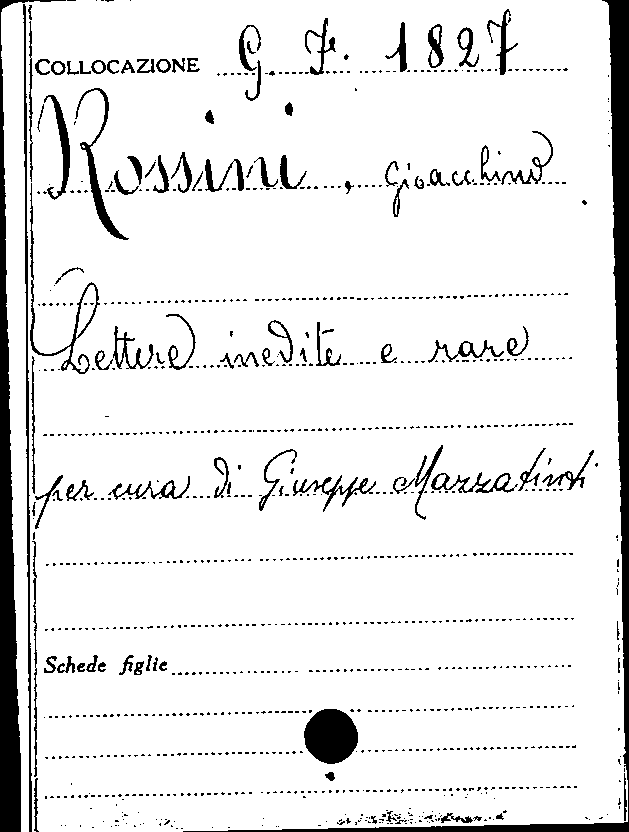 COLLOCAZIONE G. F. 1827
Rossini, Gioacchino
Lettere inedite e rare
per cura di Giuseppe Mazzatinti
Schede figlie